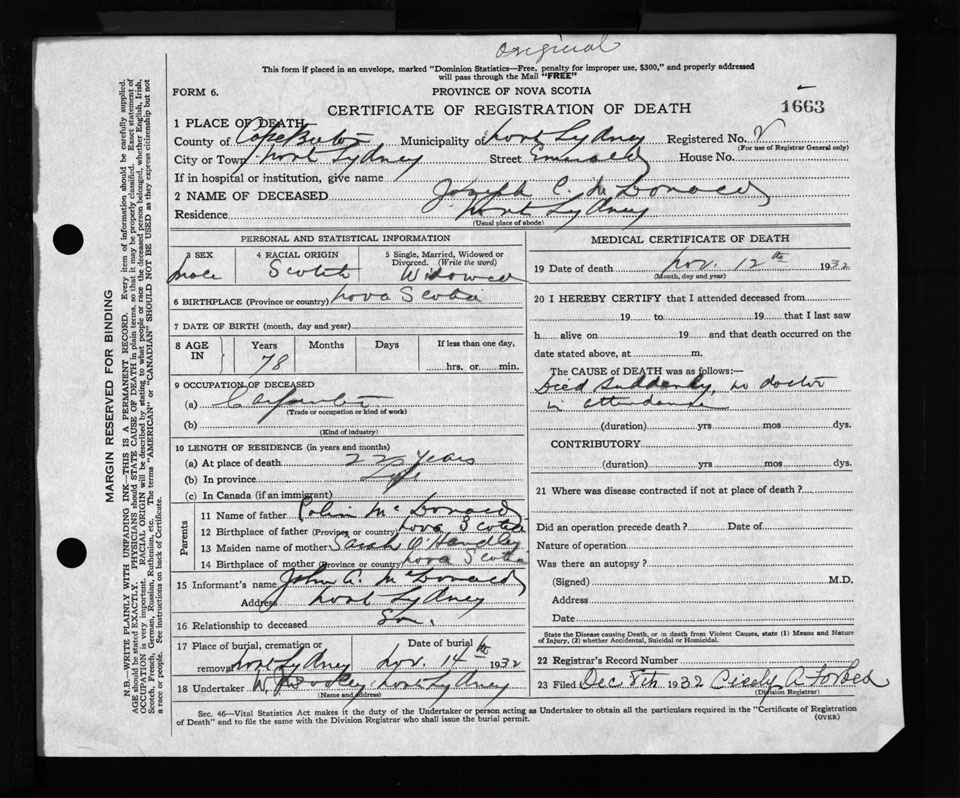 Original
This form if placed in an envelope, marked "Dominion Statistics—Free, penalty for improper use, $300," and properly addressed
will pass through the Mail "FREE"
FORM 6. PROVINCE OF NOVA SCOTIA
CERTIFICATE OF REGISTRATION OF DEATH 1663
1 PLACE OF DEATH
County of Cape Breton Municipality of North Sydney Registered No.
(For use of Registrar General only)
City or Town North Sydney Street Emerald House No.
If in hospital or institution, give name
2 NAME OF DECEASED Joseph C. McDonald
Residence North Sydney
(Usual place of abode)
PERSONAL AND STATISTICAL INFORMATION
3 SEX 4 RACIAL ORIGIN 5 Single, Married, Widowed or
Divorced. (Write the word)
Male Scotch Widowed
6 BIRTHPLACE (Province or country) Nova Scotia
7 DATE OF BIRTH (month, day and year)
8 AGE IN Years Months Days If less than one day,
78 hrs. or min.
9 OCCUPATION OF DECEASED
(a) Carpenter
(Trade or occupation or kind of work)
(b)
(Kind of industry)
10 LENGTH OF RESIDENCE (in years and months)
(a) At place of death 22 years
(b) In province Life
(c) In Canada (if an immigrant)
Parents
11 Name of father Colin McDonald
12 Birthplace of father (Province or country) Nova Scotia
13 Maiden name of mother Sarah O'Handley
14 Birthplace of mother (Province or country) Nova Scotia
15 Informant's name John A. McDonald
Address North Sydney
16 Relationship to deceased Son.
17 Place of burial, cremation or Date of burial
removal North Sydney Nov. 14th 1932
18 Undertaker W. North Sydney
(Name and address)
MEDICAL CERTIFICATE OF DEATH
19 Date of death Nov. 12th 1932
(Month, day and year)
20 I HEREBY CERTIFY that I attended deceased from
19 to 19 that I last saw
h alive on 19 and that death occurred on the
date stated above, at m.
The CAUSE of DEATH was as follows:—
Died suddenly, no doctor
in attendance
(duration) yrs mos dys.
CONTRIBUTORY
(duration) yrs. mos. dys.
21 Where was disease contracted if not at place of death?
Did an operation precede death? Date of
Nature of operation
Was there an autopsy?
(Signed) M.D.
Address
Date
State the Disease causing Death, or in death from Violent Causes, state (1) Means and Nature
of Injury, (2) whether Accidental, Suicidal or Homicidal.
22 Registrar's Record Number
23 Filed Dec 8th 1932 Cicely A Forbes
(Division Registrar)
Sec. 46—Vital Statistics Act makes it the duty of the Undertaker or person acting as Undertaker to obtain all the particulars required in the "Certificate of Registration
of Death" and to file the same with the Division Registrar who shall issue the burial permit. (OVER)
MARGIN RESERVED FOR BINDING
N.B.—WRITE PLAINLY WITH UNFADING INK—THIS IS A PERMANENT RECORD. Every item of information should be carefully supplied.
AGE should be stated EXACTLY. PHYSICIANS should STATE CAUSE OF DEATH in plain terms, so that it may be properly classified. Exact statement of
OCCUPATION is very important. RACIAL ORIGIN will be described by stating to what people or race the deceased person belonged, whether English, Irish,
Scotch, French, German, Russian, Ruthenian, etc. The terms "AMERICAN" or "CANADIAN" SHOULD NOT BE USED as they express citizenship but not
a race or people. See instructions on back of Certificate.